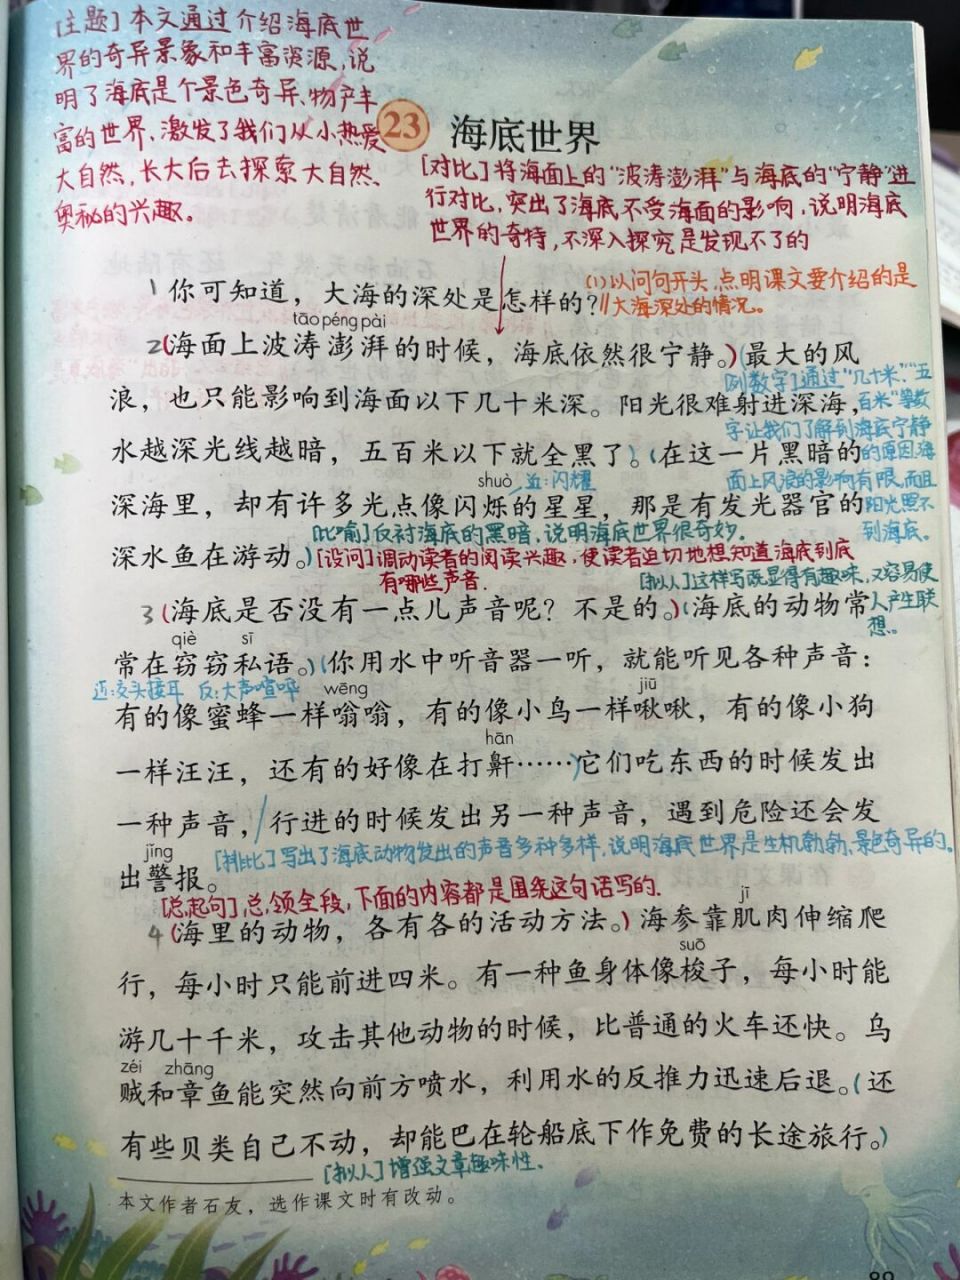 [主题]本文通过介绍海底世
界的奇异景象和丰富资源,说
明了海底是个景色奇异、物产丰
富的世界,激发了我们从小热爱
大自然,长大后去探索大自然
奥秘的兴趣。
23 海底世界
[对比]将海面上的“波涛澎湃”与海底的“宁静”进
行对比,突出了海底不受海面的影响,说明海底
世界的奇特,不深入探究是发现不了的
(1)以问句开头,点明课文要介绍的是
大海深处的情况。
1 你可知道，大海的深处是怎样的？
tāo péng pài
2(海面上波涛澎湃的时候，海底依然很宁静。)(最大的风
[列数字]通过“几十米”“五
浪，也只能影响到海面以下几十米深。阳光很难射进深海，
百米”等数
字让我们了解到海底宁静
水越深光线越暗，五百米以下就全黑了。(在这一片黑暗的
的原因,海
shuò
近:闪耀
面上风浪的影响有限,而且
深海里，却有许多光点像闪烁的星星，那是有发光器官的
阳光照不
[比喻]反衬海底的黑暗,说明海底世界很奇妙.
到海底。
深水鱼在游动。)
[设问]调动读者的阅读兴趣,使读者迫切地想知道海底到底
有哪些声音.
[拟人]这样写既显得有趣味,又容易使
3(海底是否没有一点儿声音呢？不是的。)(海底的动物常
人产生联
想。
qiè sī
常在窃窃私语。)(你用水中听音器一听，就能听见各种声音：
近:交头接耳 反:大声喧哗
wēng jiū
有的像蜜蜂一样嗡嗡，有的像小鸟一样啾啾，有的像小狗
hān
一样汪汪，还有的好像在打鼾……)它们吃东西的时候发出
一种声音，/行进的时候发出另一种声音，遇到危险还会发
jǐng
[排比]写出了海底动物发出的声音多种多样,说明海底世界是生机勃勃、景色奇异的。
出警报。
[总起句]总领全段,下面的内容都是围绕这句话写的.
jī
4(海里的动物，各有各的活动方法。)海参靠肌肉伸缩爬
suō
行，每小时只能前进四米。有一种鱼身体像梭子，每小时能
游几十千米，攻击其他动物的时候，比普通的火车还快。乌
zéi zhāng
贼和章鱼能突然向前方喷水，利用水的反推力迅速后退。(还
有些贝类自己不动，却能巴在轮船底下作免费的长途旅行。)
[拟人]增强文章趣味性.
本文作者石友，选作课文时有改动。